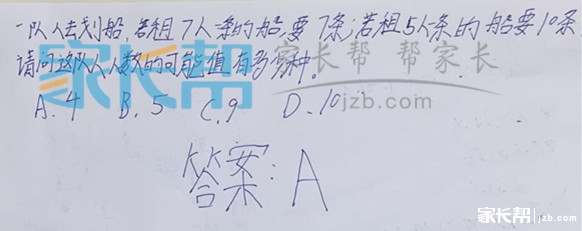 一队人去划船,若租7人一条的船要7条;若租5人一条的船要10条
请问这队人人数的可能值有多少种。
A.4 B.5 C.9 D.10
答案:A
家长帮 家长帮 家长
jzb.com
家长帮 jzb.com